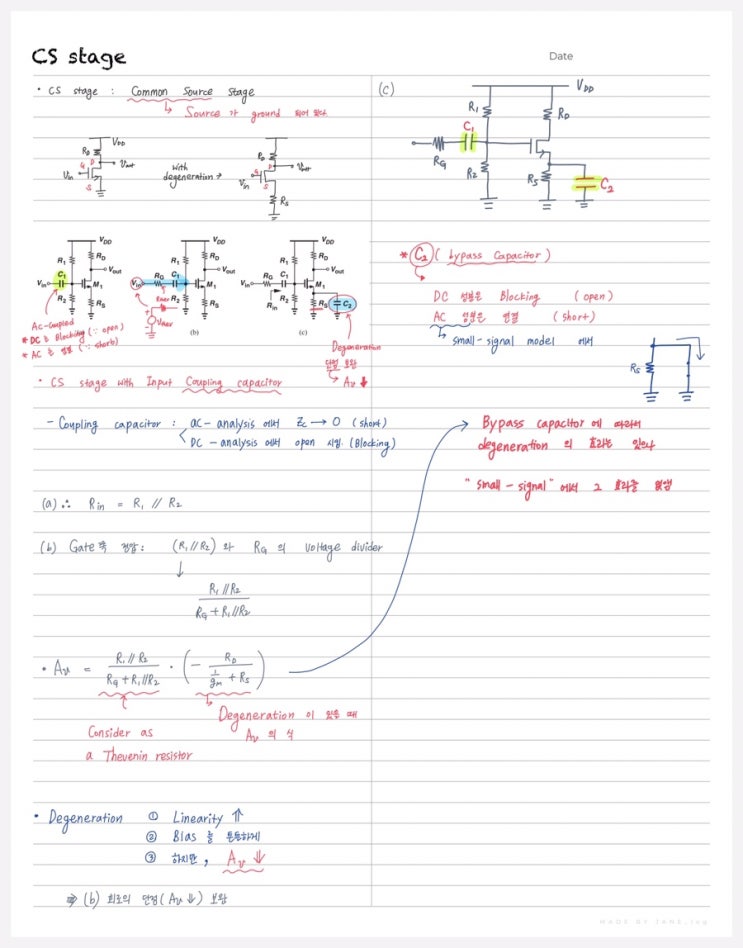 CS stage
Date
• CS stage : Common Source Stage
↳ Source 가 ground 되어 있다.
VDD
RD
D
G
S
Vin
Vout
with
degeneration →
RD
D
S
Vin
Vout
RS
VDD
R1
RD
C1
Vin
Vout
M1
R2
RS
VDD
R1
RD
Vin
RG
C1
Vout
M1
R2
RS
(b)
VDD
R1
RD
Vin
RG
C1
Vout
M1
R2
Rin
RS
C2
(c)
AC-Coupled
* DC는 Blocking (∵ open)
* AC는 연결 (∵ short)
Degeneration
단점 보완
↳ Av ↓
• CS stage with Input Coupling capacitor
- Coupling capacitor : ac- analysis 에서 Zc → 0 (short)
DC - analysis 에서 open 시킴. (Blocking)
(a) ∴ Rin = R1 // R2
(b) Gate쪽 전압: (R1//R2) 와 RG 의 voltage divider
↓
R1//R2
RG + R1//R2
• Av = R1//R2 / RG + R1//R2 · (- RD / 1/gm + RS)
Degeneration 이 있을 때
Av 의 식
Consider as
a Thevenin resistor
• Degeneration ① Linearity ⇑
② Bias 를 둔둔하게
③ 하지만, Av ⇓
⇛ (b) 회로의 단점(Av ⇓) 보완
(c)
VDD
R1
RD
C1
RG
R2
RS
C2
* C2 ( bypass Capacitor)
DC 성분은 Blocking (open)
AC 성분은 연결 (short)
↳ small-signal model 에서
RS
Bypass capacitor 에 따라서
degeneration 의 효과는 있으나
"small-signal" 에서 그 효과를 없앰
MADE BY JANE_